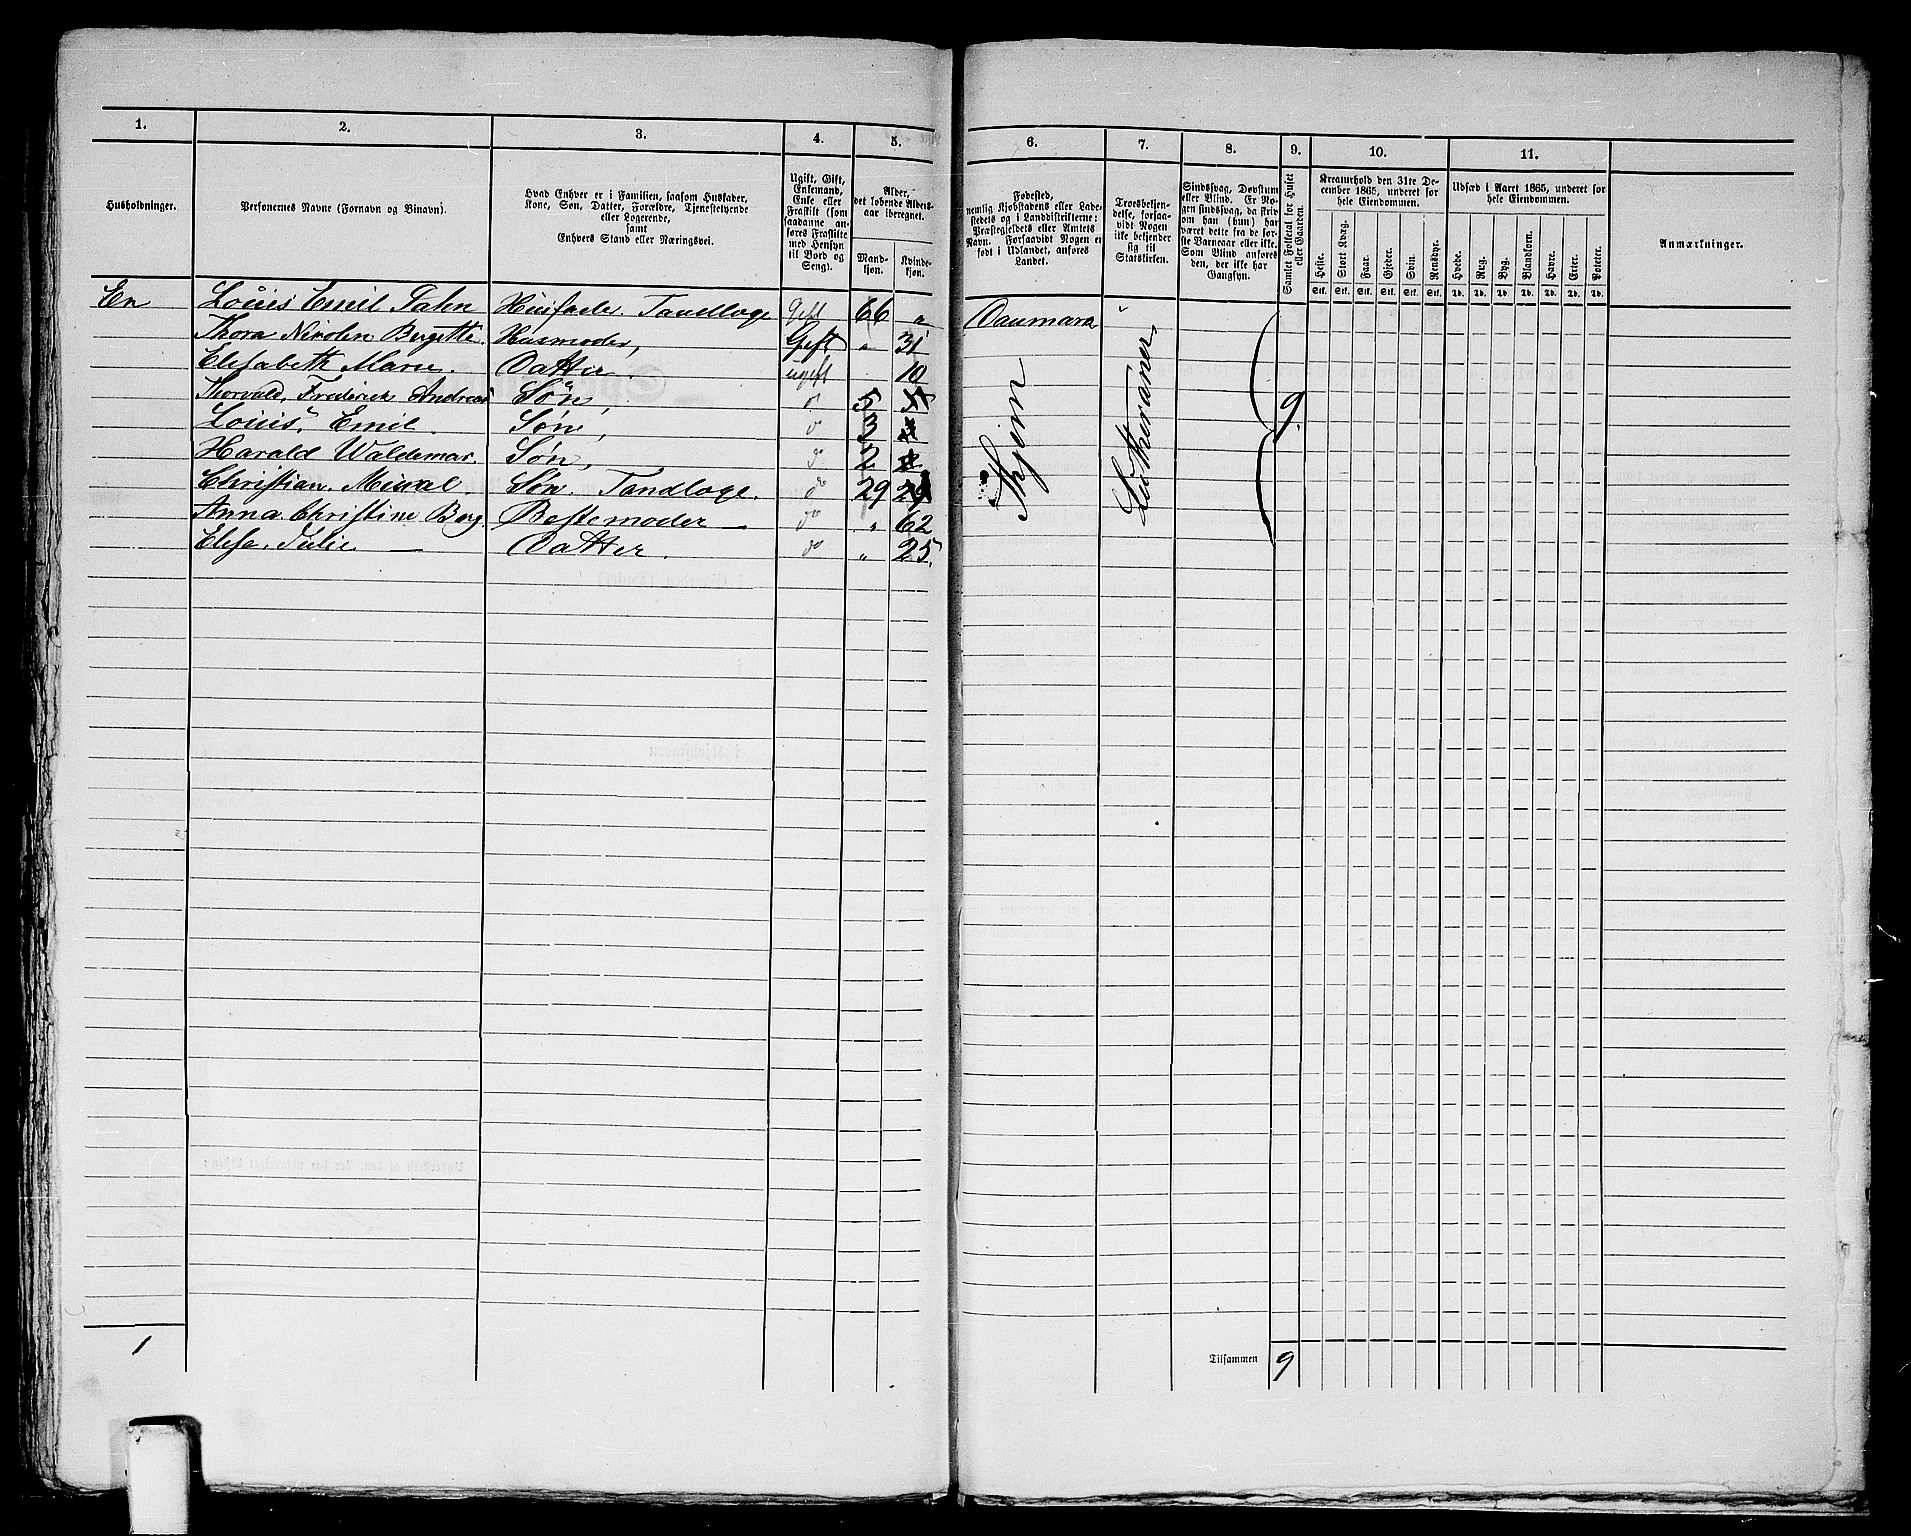 1. 2. 3. 4. 5. 6. 7. 8. 9. 10. 11.
Husholdninger.
Personernes Navne (Fornavn og Binavn).
Hvad Enhver er i Familien, saasom Husfader,
Kone, Søn, Datter, Forældre, Tjenestetyende
eller Logerende,
samt
Enhvers Stand eller Næringsvei.
Ugift, Gift,
Enkemand,
Enke eller
Fraskilt (som
saadanne an-
føres Fraskilte
med Hensyn
til Bord og
Seng).
Alder,
det løbende Alders-
aar iberegnet.
Mand-
kjøn.
Kvinde-
kjøn.
Fødested,
nemlig Kjøbstadens eller Lade-
stedets og i Landdistrikterne:
Præstegjeldets eller Amtets
Navn. Forsaavidt Nogen er
født i Udlandet, anføres
Landet.
Troesbekjen-
delse, forsaa-
vidt Nogen
ikke bekjender
sig til
Statskirken.
Sindssvag, Døvstum
eller Blind. Er No-
gen sindssvag, da skriv
om han (hun) har
været dette fra de før-
ste Barneaar eller ikke.
Som Blind anføres
den, der ikke har
Gangsyn.
Samlet Folketal for Huset
eller Gaarden.
Kreaturhold den 31te De-
cember 1865, underet for
hele Eiendommen.
Heste. Stort Kvæg. Faar. Gjeder. Svin. Rensdyr.
Stk. Stk. Stk. Stk. Stk. Stk.
Udsæd i Aaret 1865, underet for
hele Eiendommen.
Hvede. Rug. Byg. Blandkorn. Havre. Erter. Poteter.
Td. Td. Td. Td. Td. Td. Td.
Anmærkninger.
En Louis Emil Husfader Tandlæge Gift 66 " Danmark "
Thora Bergette. Husmoder, Gift " 31
Elisabeth Marie. Datter. ugift 10
Thorvald, Frederick Andreas Søn, do 5
Louis, Emil. Søn, do 3
Harald Waldemar. Søn, do 2
Christian. Søn. Tandlæge. do 29
Anna Christine Berg. Bestemoder — do " 62
Elise. Julie — Datter. do " 25.
Lutheraner
9
1
Tilsammen 9